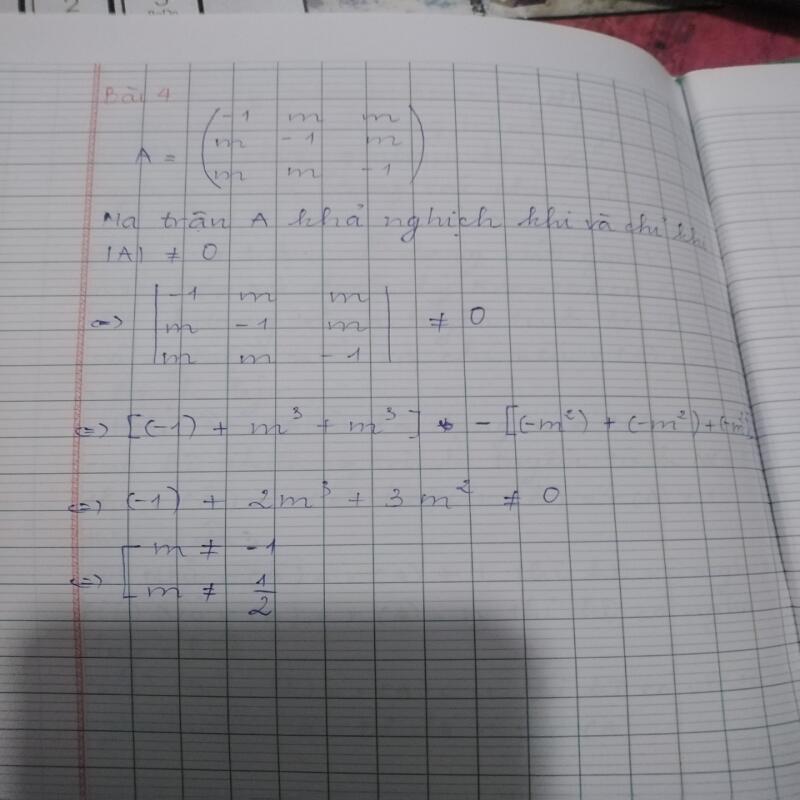 Bài 4
-1 m m
A = m -1 m
m m -1
Ma trận A khả nghịch khi và chỉ khi
|A| ≠ 0
-1 m m
<=> m -1 m ≠ 0
m m -1
<=> [(-1) + m³ + m³] - [(-m²) + (-m²) + (-m²)]
<=> (-1) + 2m³ + 3m² ≠ 0
m ≠ -1
<=> m ≠ 1/2